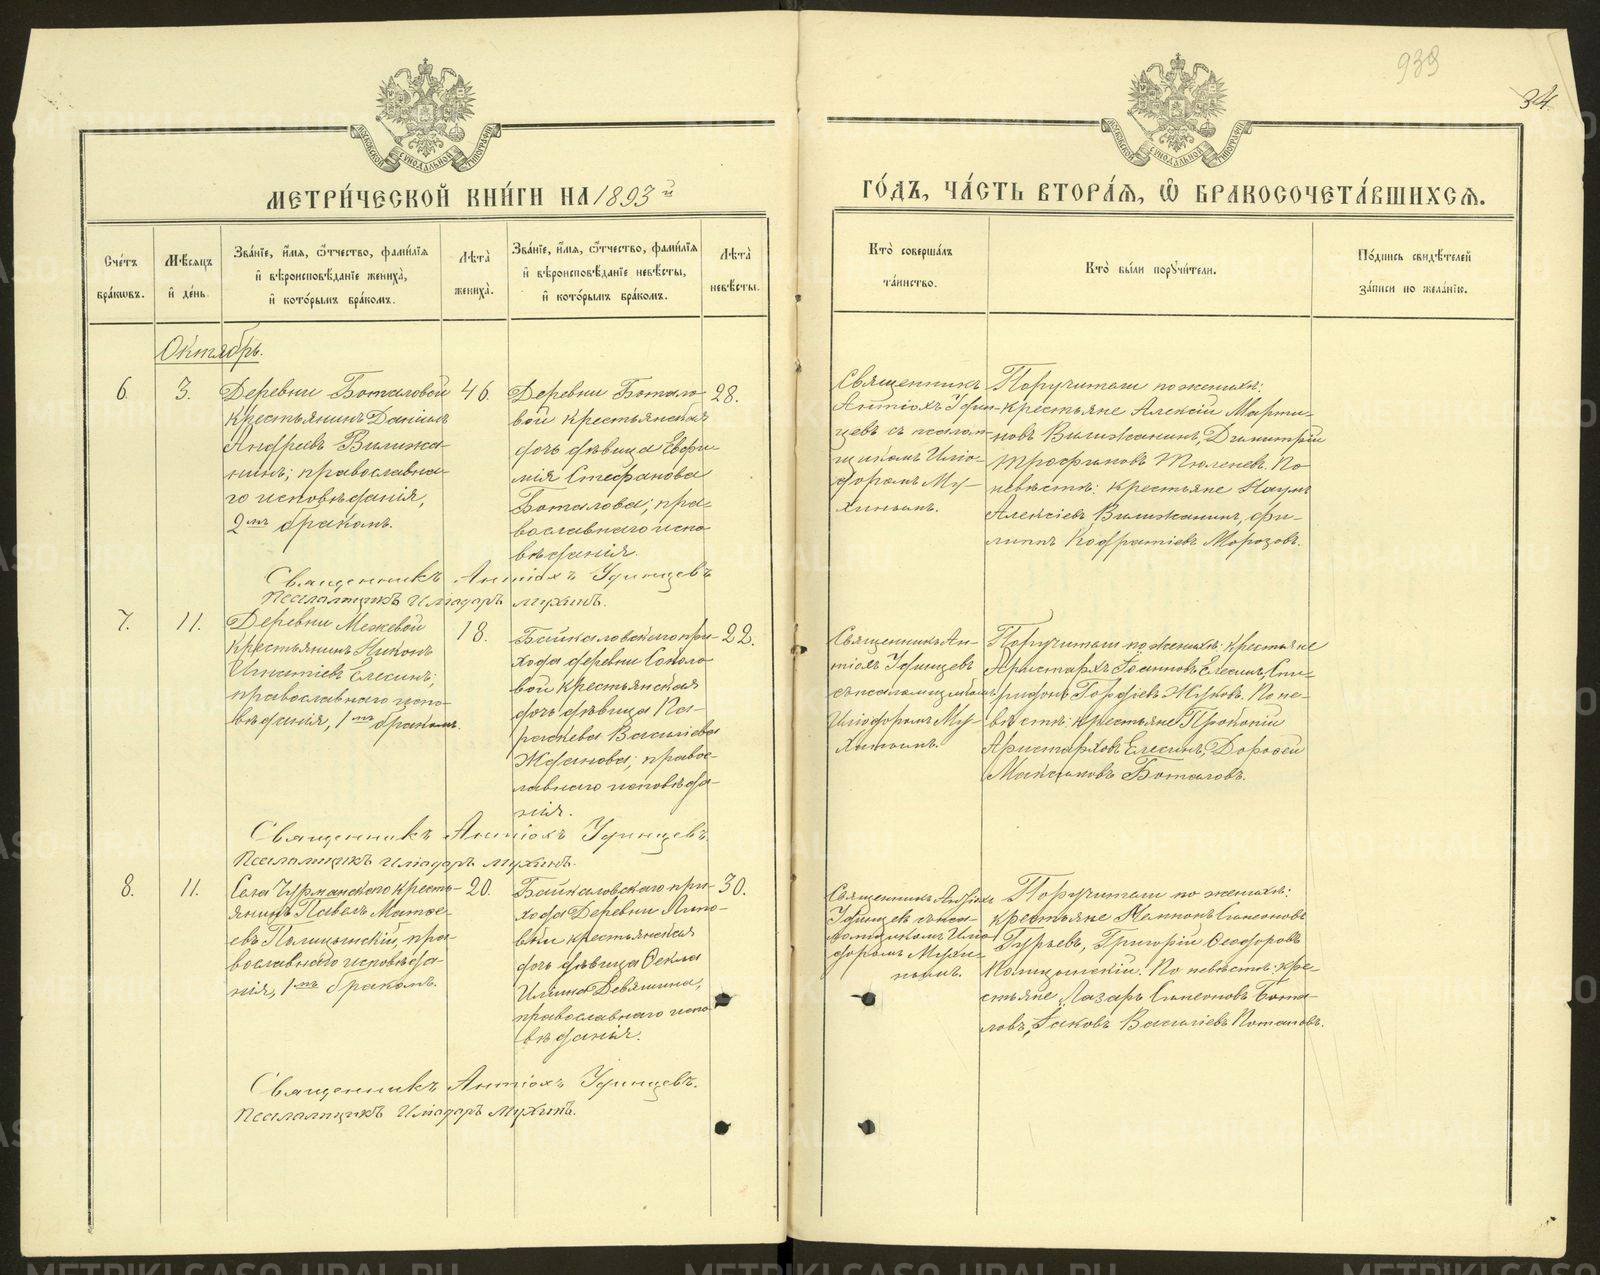 939
34.
МОСКОВСКОЙ СѴНОДАЛЬНОЙ ТИПОГРАФІИ
МОСКОВСКОЙ СѴНОДАЛЬНОЙ ТИПОГРАФІИ
МЕТРИ́ЧЕСКОЙ КНИ́ГИ НА 1893й
ГО́ДЪ, ЧА́СТЬ ВТОРА́Я, Ѿ БРАКОСОЧЕТА́ВШИХСЯ.
Сче́тъ
бра́кѡвъ.
Мѣ́сяцъ
и҆ де́нь.
Зва́нїе, и҆́мя, ѻ҆́тчество, фами́лїя
и҆ вѣроисповѣ́данїе жениха̀,
и҆ кото́рымъ бра́комъ.
Лѣ́та
жениха̀.
Зва́нїе, и҆́мя, ѻ҆́тчество, фами́лїя
и҆ вѣроисповѣ́данїе невѣ́сты,
и҆ кото́рымъ бра́комъ.
Лѣ́та
невѣ́сты.
Кто̀ соверша́лъ
та́инство.
Кто̀ бы́ли поручи́тели.
По́дпись свидѣ́телей
за́писи по жела́нїю.
Октябрь.
6.
3.
Деревни Боталовой
крестьянинъ Даніилъ
Андреевъ Вилижа-
нинъ; православна-
го исповѣданія,
2мъ бракомъ.
46.
Деревни Ботало-
вой крестьянская
дочь дѣвица Евфи-
мія Стефанова
Боталова; пра-
вославнаго испо
вѣданія.
28.
Священникъ
Антіохъ Удин-
цевъ съ псалом-
щикомъ Иліо-
доромъ Му-
хинымъ.
Поручители по женихѣ:
крестьяне Алексій Марти-
новъ Вилижанинъ, Димитрій
Трофимовъ Тюленевъ. По
невѣстѣ: крестьяне Наумъ
Алексіевъ Вилижанинъ, Фи-
липпъ Кодратіевъ Морозовъ.
Священникъ Антіохъ Удинцевъ
Псаломщикъ Иліодоръ Мухинъ.
7.
11.
Деревни Межевой
крестьянинъ Никонъ
Игнатіевъ Елесинъ;
православнаго испо-
вѣданія, 1мъ бракомъ.
18.
Байкаловскаго при-
хода деревни Соколо
вой крестьянская
дочь дѣвица Па-
раскева Василіева
Жданова; правос-
лавнаго исповѣда-
нія.
22.
Священникъ Ан-
тіохъ Удинцевъ
съ псаломщикомъ
Иліодоромъ Му-
хинымъ.
Поручители по женихѣ: крестьяне
Аристархъ Іоанновъ Елесинъ, Спи-
ридонъ Гордѣевъ Жуковъ. По не-
вѣстѣ: крестьяне Прокопій
Аристарховъ Елесинъ, Дороѳей
Максимовъ Боталовъ.
Священникъ Антіохъ Удинцевъ.
Псаломщикъ Иліодоръ Мухинъ.
8.
11.
Села Чурманскаго кресть-
янинъ Павелъ Матѳе-
евъ Палицынскій, пра-
вославнаго исповѣда-
нія, 1мъ бракомъ.
20.
Байкаловскаго при-
хода Деревни Липо-
вки крестьянская
дочь дѣвица Ѳекла
Ильина Девяшина;
православнаго испо-
вѣданія.
30.
Священникъ Антіохъ
Удинцевъ съ пса-
ломщикомъ Иліо
доромъ Мухи-
нымъ.
Поручители по женихѣ:
крестьяне Симеоновъ
Гурьевъ, Григорій Ѳеодоровъ
Палицынскій. По невѣстѣ: кре-
стьяне Лазарь Симеоновъ Бота-
ловъ, Іаковъ Василіевъ Потаповъ.
Священникъ Антіохъ Удинцевъ.
Псаломщикъ Иліодоръ Мухинъ.
METRIKI.GASO-URAL.RU